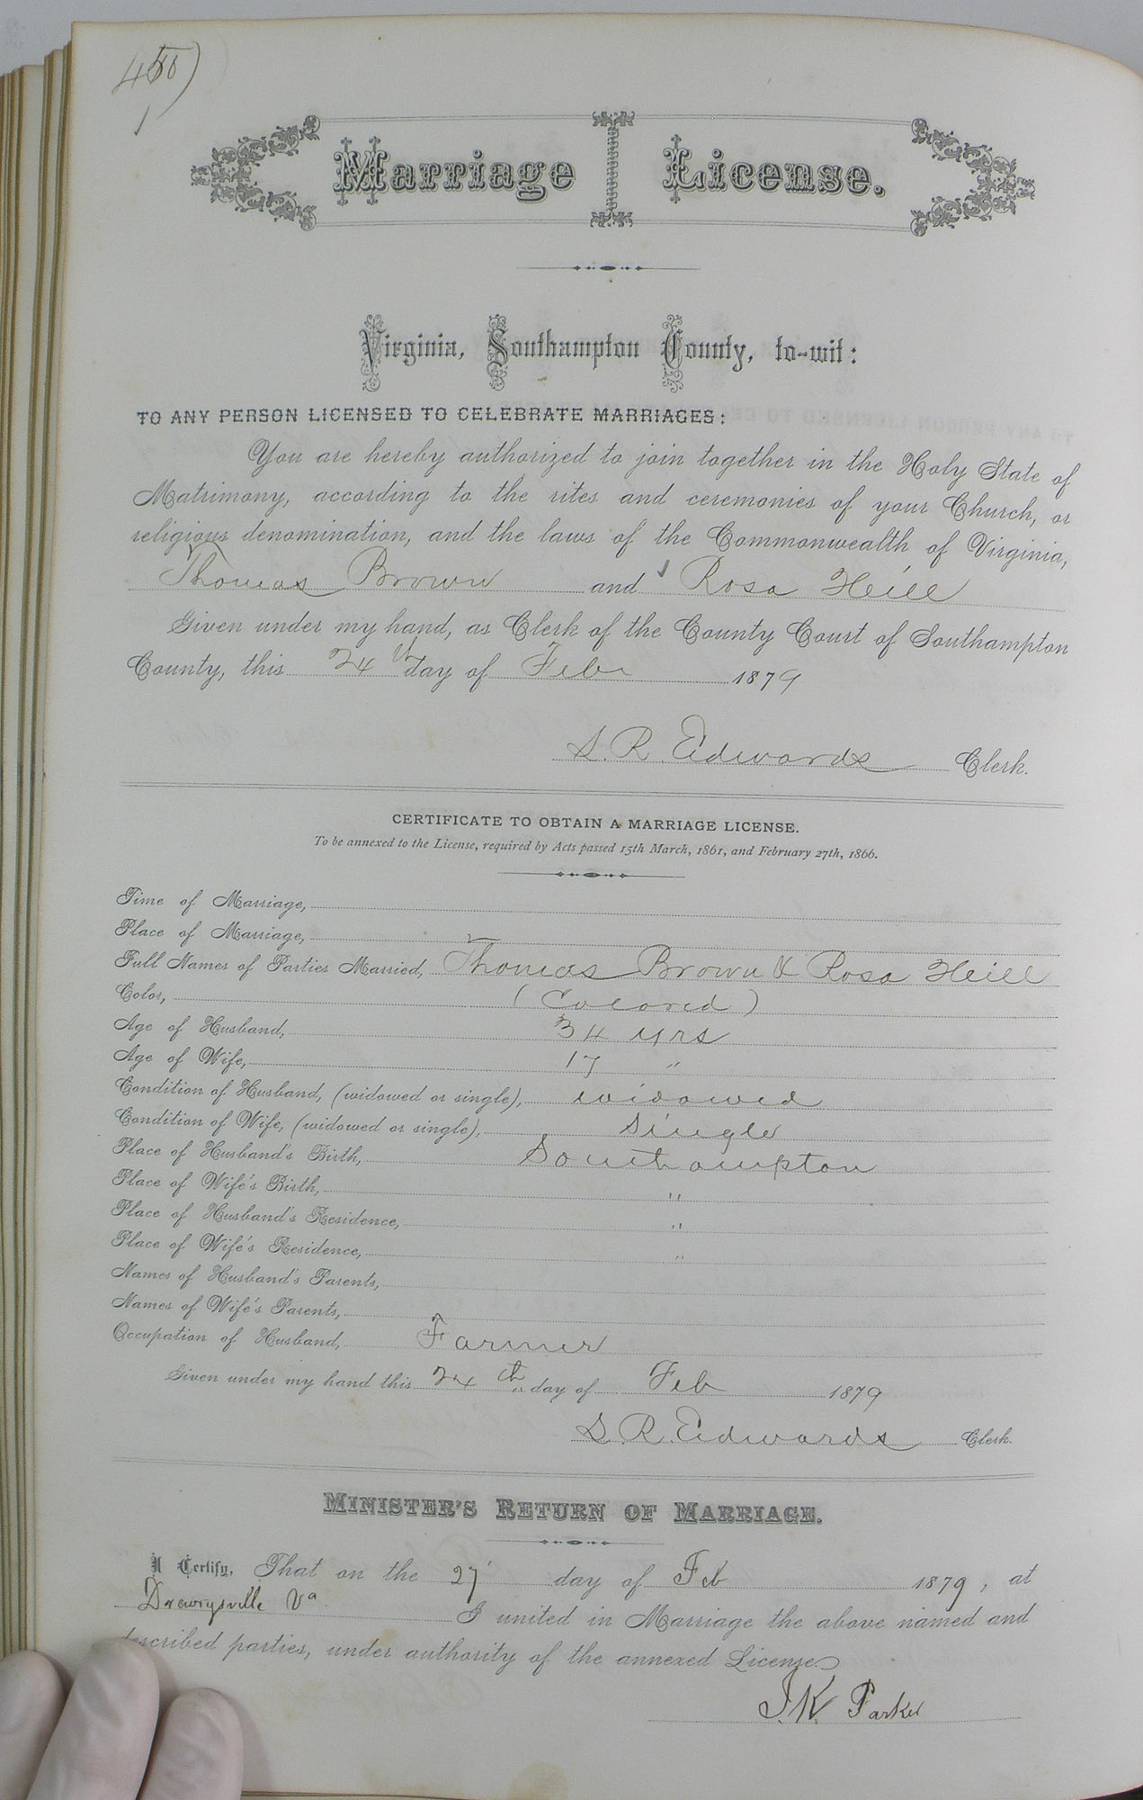 Marriage License.
Virginia, Southampton County, to-wit:
TO ANY PERSON LICENSED TO CELEBRATE MARRIAGES:
You are hereby authorized to join together in the Holy State of
Matrimony, according to the rites and ceremonies of your Church, or
religious denomination, and the laws of the Commonwealth of Virginia,
Thomas Brown and Rosa Heill
Given under my hand, as Clerk of the County Court of Southampton
County, this 24th day of Feb 1879
S. R. Edwards Clerk.
CERTIFICATE TO OBTAIN A MARRIAGE LICENSE.
To be annexed to the License, required by Acts passed 15th March, 1861, and February 27th, 1866.
Time of Marriage,
Place of Marriage,
Full Names of Parties Married, Thomas Brown & Rosa Heill
Color, (Colored)
Age of Husband, 34 yrs
Age of Wife, 17 "
Condition of Husband, (widowed or single), widowed
Condition of Wife, (widowed or single), Single
Place of Husband's Birth, Southampton
Place of Wife's Birth, "
Place of Husband's Residence, "
Place of Wife's Residence, "
Names of Husband's Parents,
Names of Wife's Parents,
Occupation of Husband, Farmer
Given under my hand this 24th day of Feb 1879
S. R. Edwards Clerk.
MINISTER'S RETURN OF MARRIAGE.
I Certify, That on the 27 day of Feb 1879, at
Drewrysville Va I united in Marriage the above named and
described parties, under authority of the annexed License.
J. K. Parker